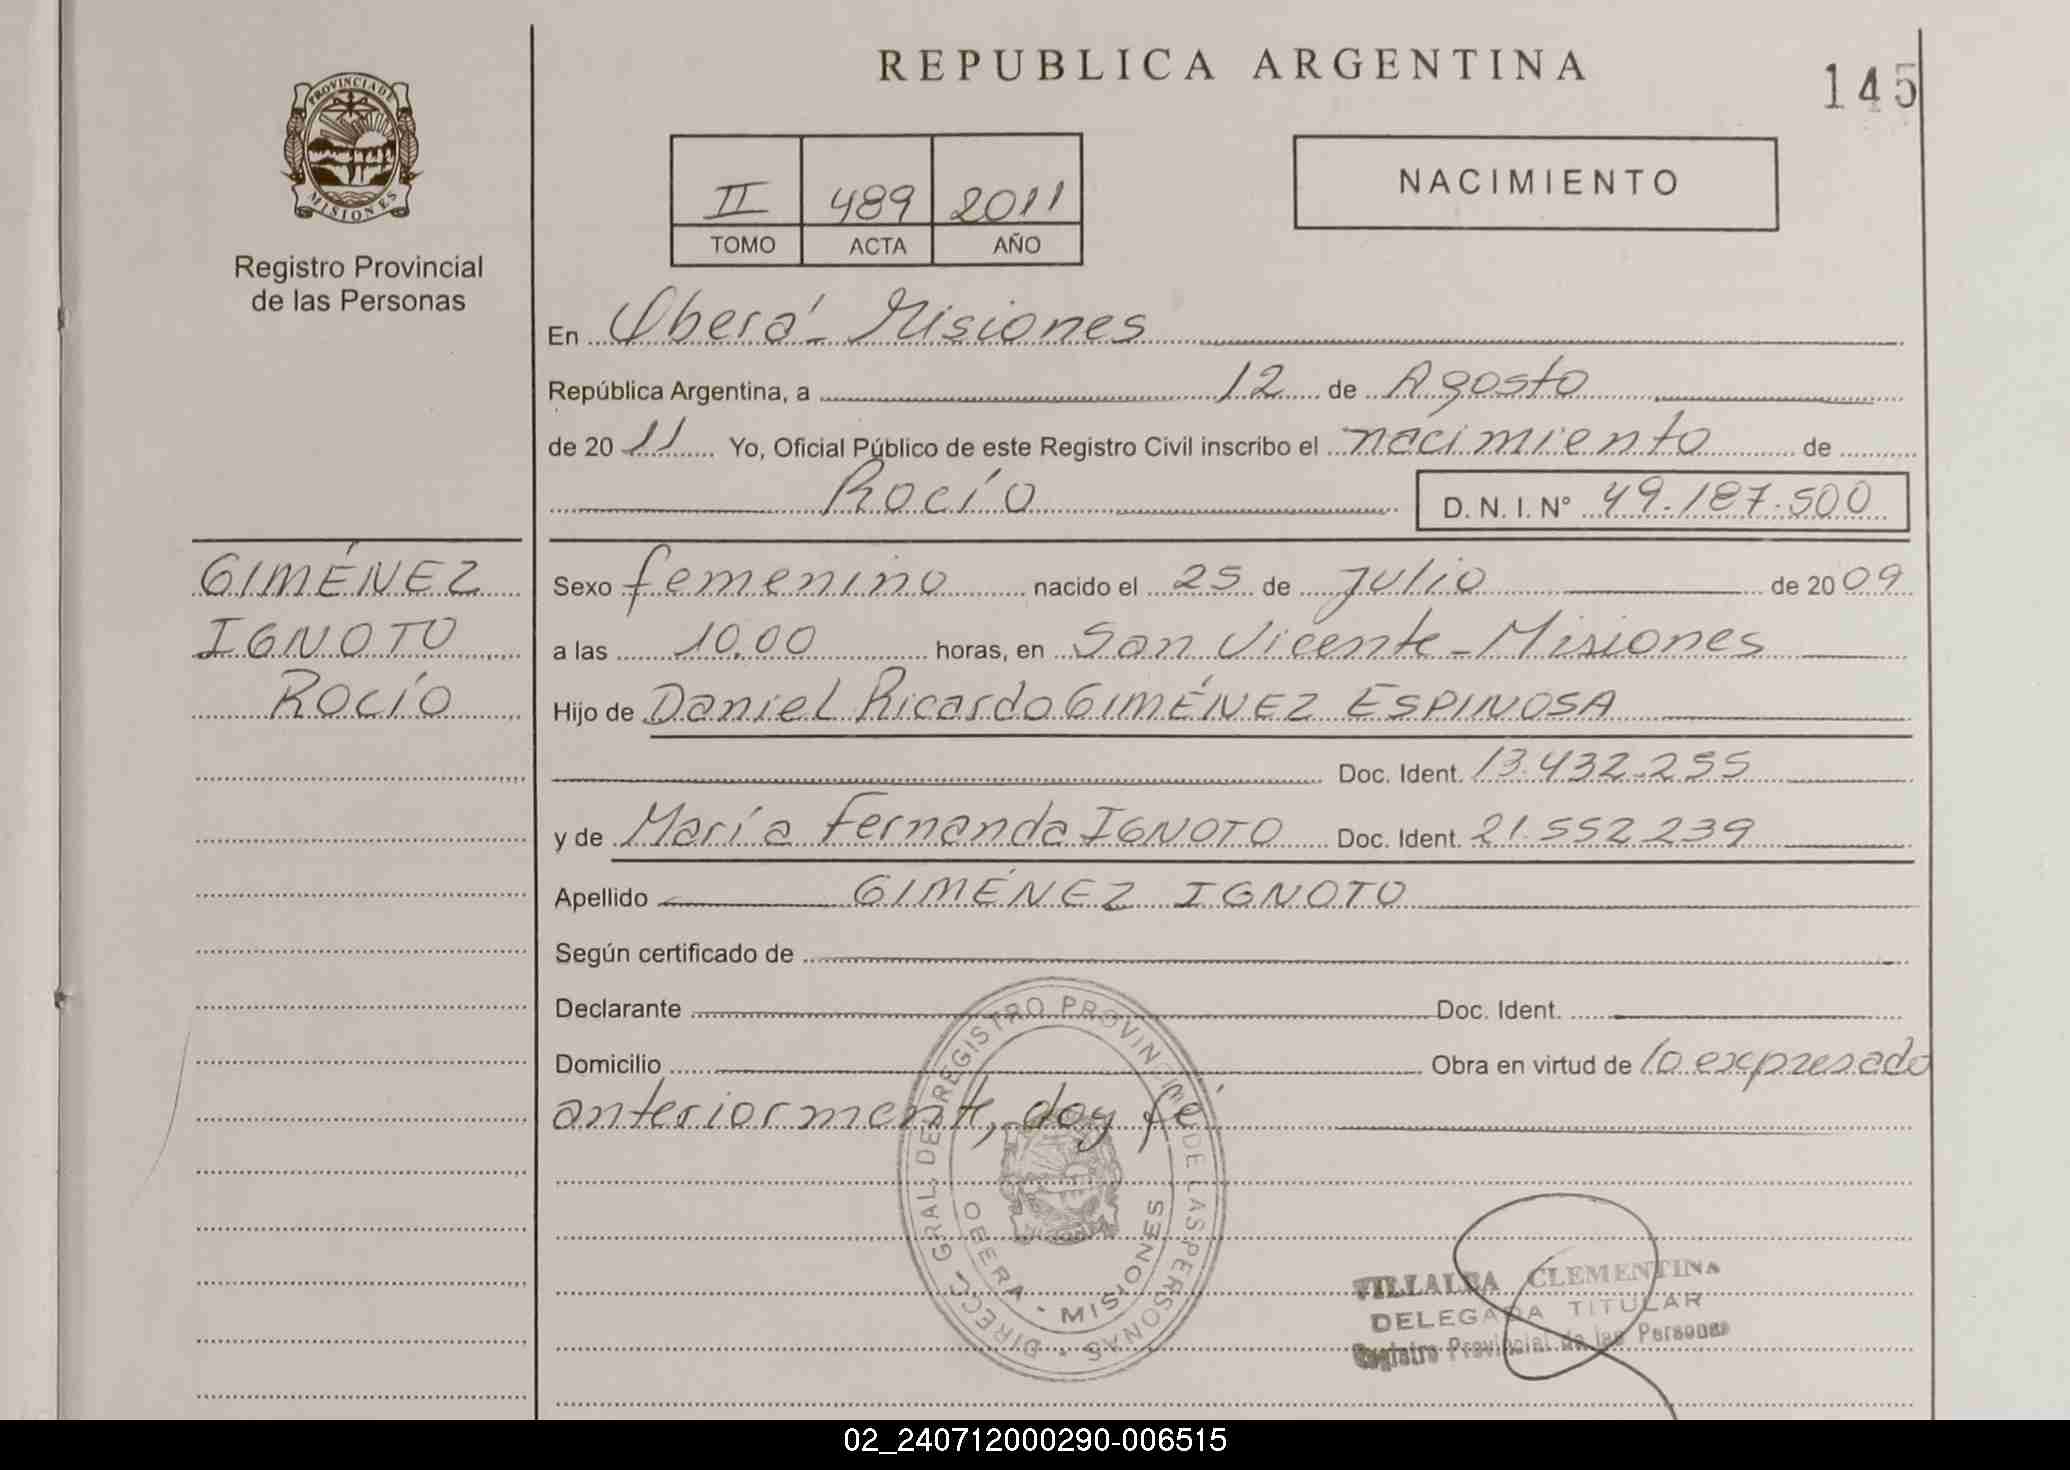 REPUBLICA ARGENTINA
145
PROVINCIA DE MISIONES
Registro Provincial
de las Personas
II 489 2011
TOMO ACTA AÑO
NACIMIENTO
En Oberá - Misiones
República Argentina, a 12 de Agosto
de 20 11 Yo, Oficial Público de este Registro Civil inscribo el nacimiento de
Rocío D. N. I. N° 49.187.500
GIMÉNEZ
IGNOTO
ROCÍO
Sexo femenino nacido el 25 de julio de 20 09
a las 10.00 horas, en San Vicente - Misiones
Hijo de Daniel Ricardo GIMÉNEZ ESPINOSA
Doc. Ident. 13.432.255
y de María Fernanda IGNOTO Doc. Ident. 21.552.239
Apellido GIMÉNEZ IGNOTO
Según certificado de
Declarante Doc. Ident.
Domicilio Obra en virtud de lo expresado
anteriormente, doy fé
DIRECC. GRAL. DE REGISTRO PROVINCIAL DE LAS PERSONAS
OBERA - MISIONES
VILLALBA CLEMENTINA
DELEGADA TITULAR
Registro Provincial de las Personas
02_240712000290-006515